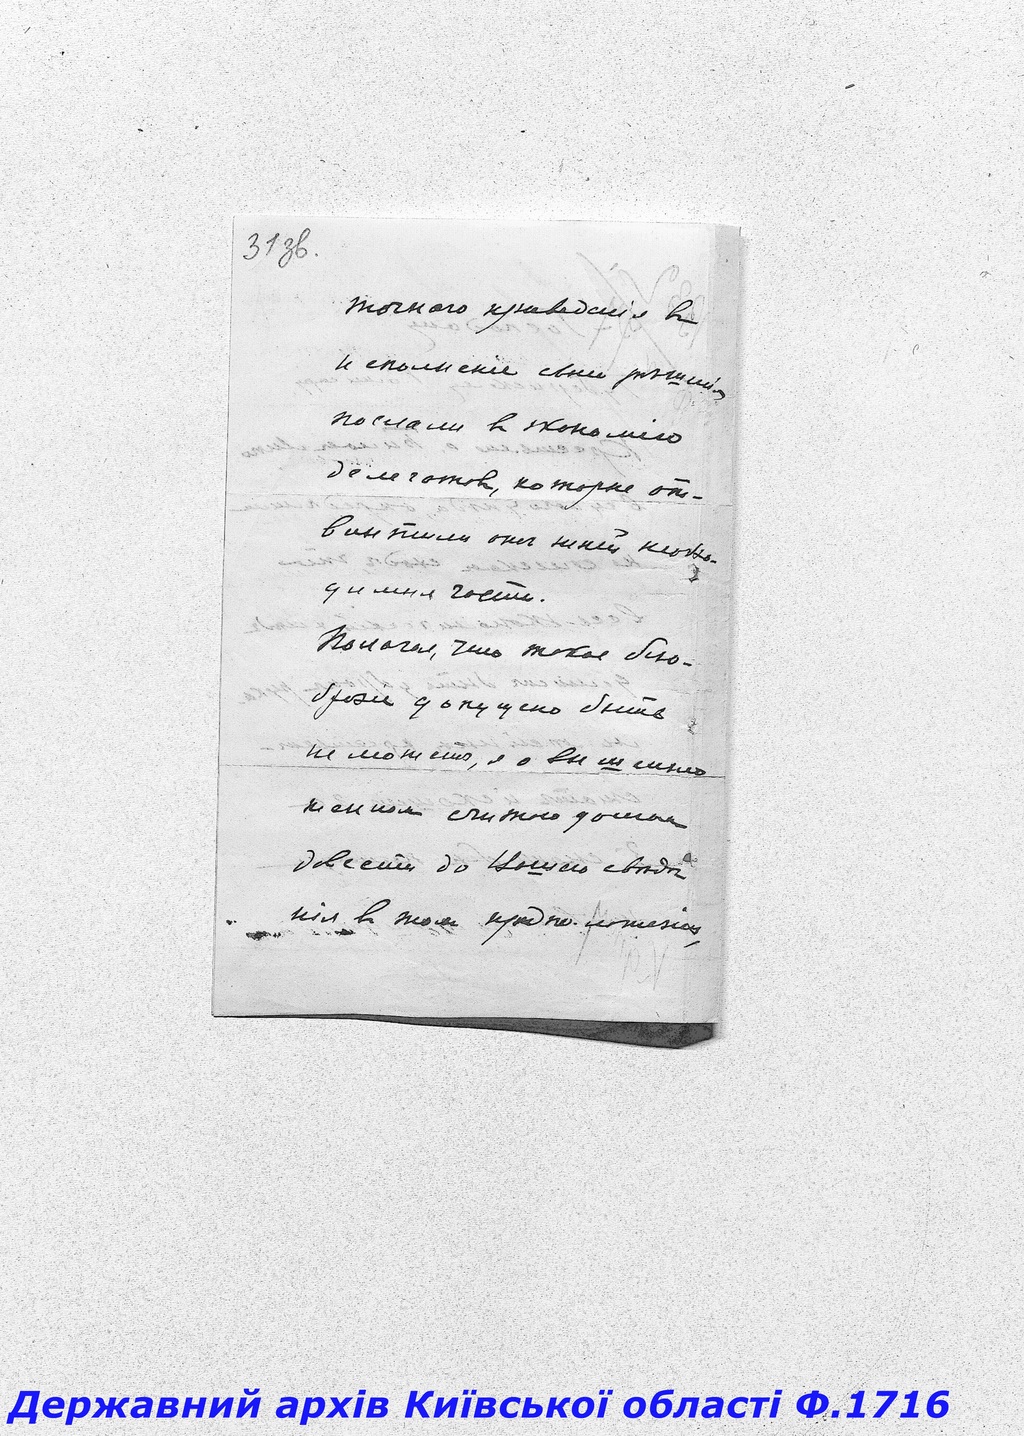 31зв.
точного приведенія в
исполненіе свои рѣшенія
послали в экономію
делегатов, которые от-
винтили от ней необхо-
димыя части.
Полагая, что такое безо-
бразие допущено быть
не может, я о вышеизло
женном считаю долгом
довести до Вашего сведе
нія в том предположеніи,
Державний архів Київської області Ф.1716